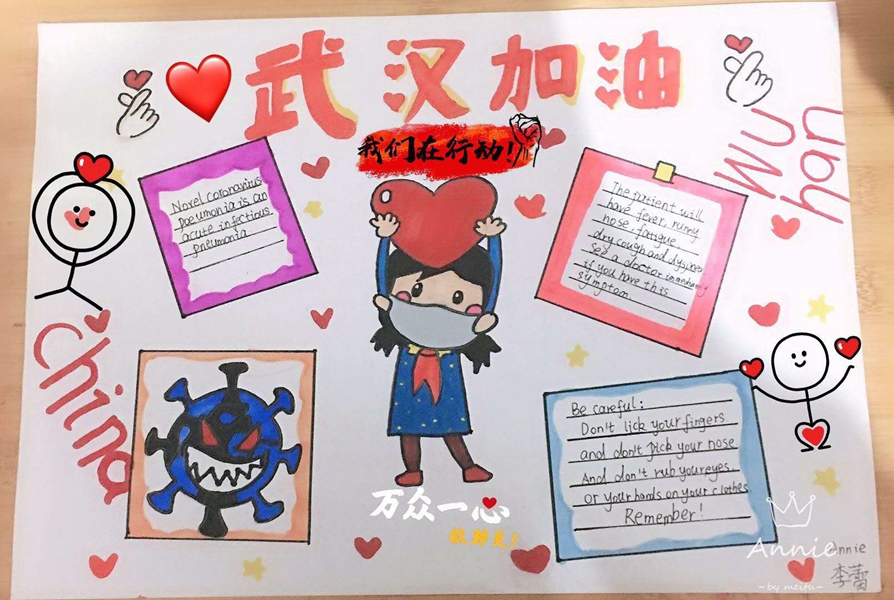 武汉加油
我们在行动!
Wu
han
China
Novel coronavirus
pneumonia is an
acute infectious
pneumonia
The patient will
have fever, runny
nose, fatigue
dry cough and
See a doctor
if you have this
symptom
Be careful:
Don't lick your fingers
and don't pick your nose
And don't rub your eyes.
Or your hands on your clothes
Remember!
万众一心
Annie
- by meitu -
Annie
李蕾